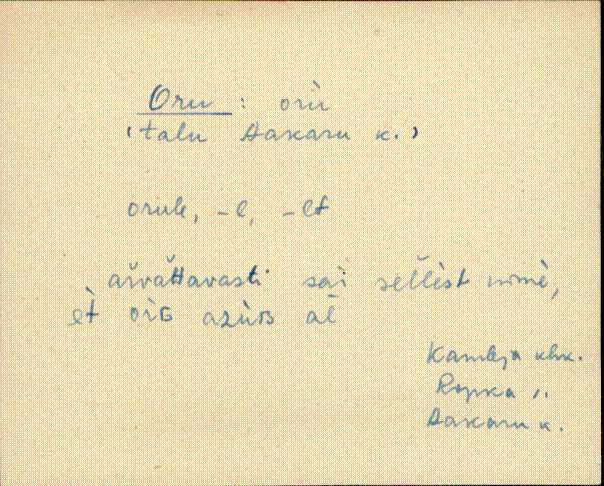 Oru : orù
(talu Aakaru k.)
orule, -l, -lt
arvattavasti sai sellèst nimè,
èt orG azùB al
Kambja khk.
Ropka "
Aakaru k.